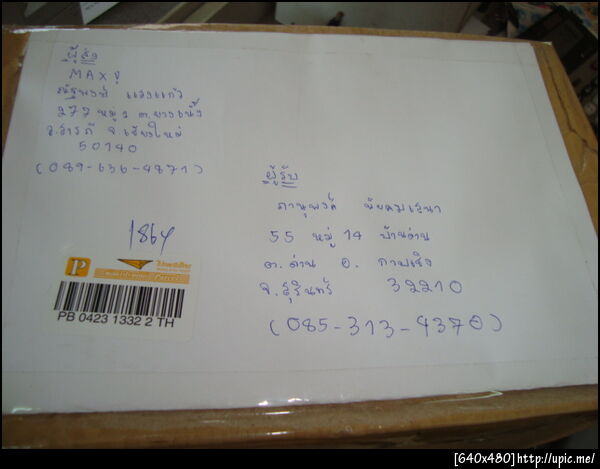 ผู้ส่ง
MAXจู
ณัฐพงษ์ แสงแก้ว
277 หมู่ 2 ต.ยางเนิ้ง
อ.สารภี จ.เชียงใหม่
50140
(089-636-4871)
ผู้รับ
ภานุพงศ์
55 หมู่ 14 บ้านด่าน
ต.ด่าน อ. กาบเชิง
จ.สุรินทร์ 32210
(085-313-4370)
1864
P
ไปรษณีย์ไทย
PB 0423 1332 2 TH
[640x480]http://upic.me/